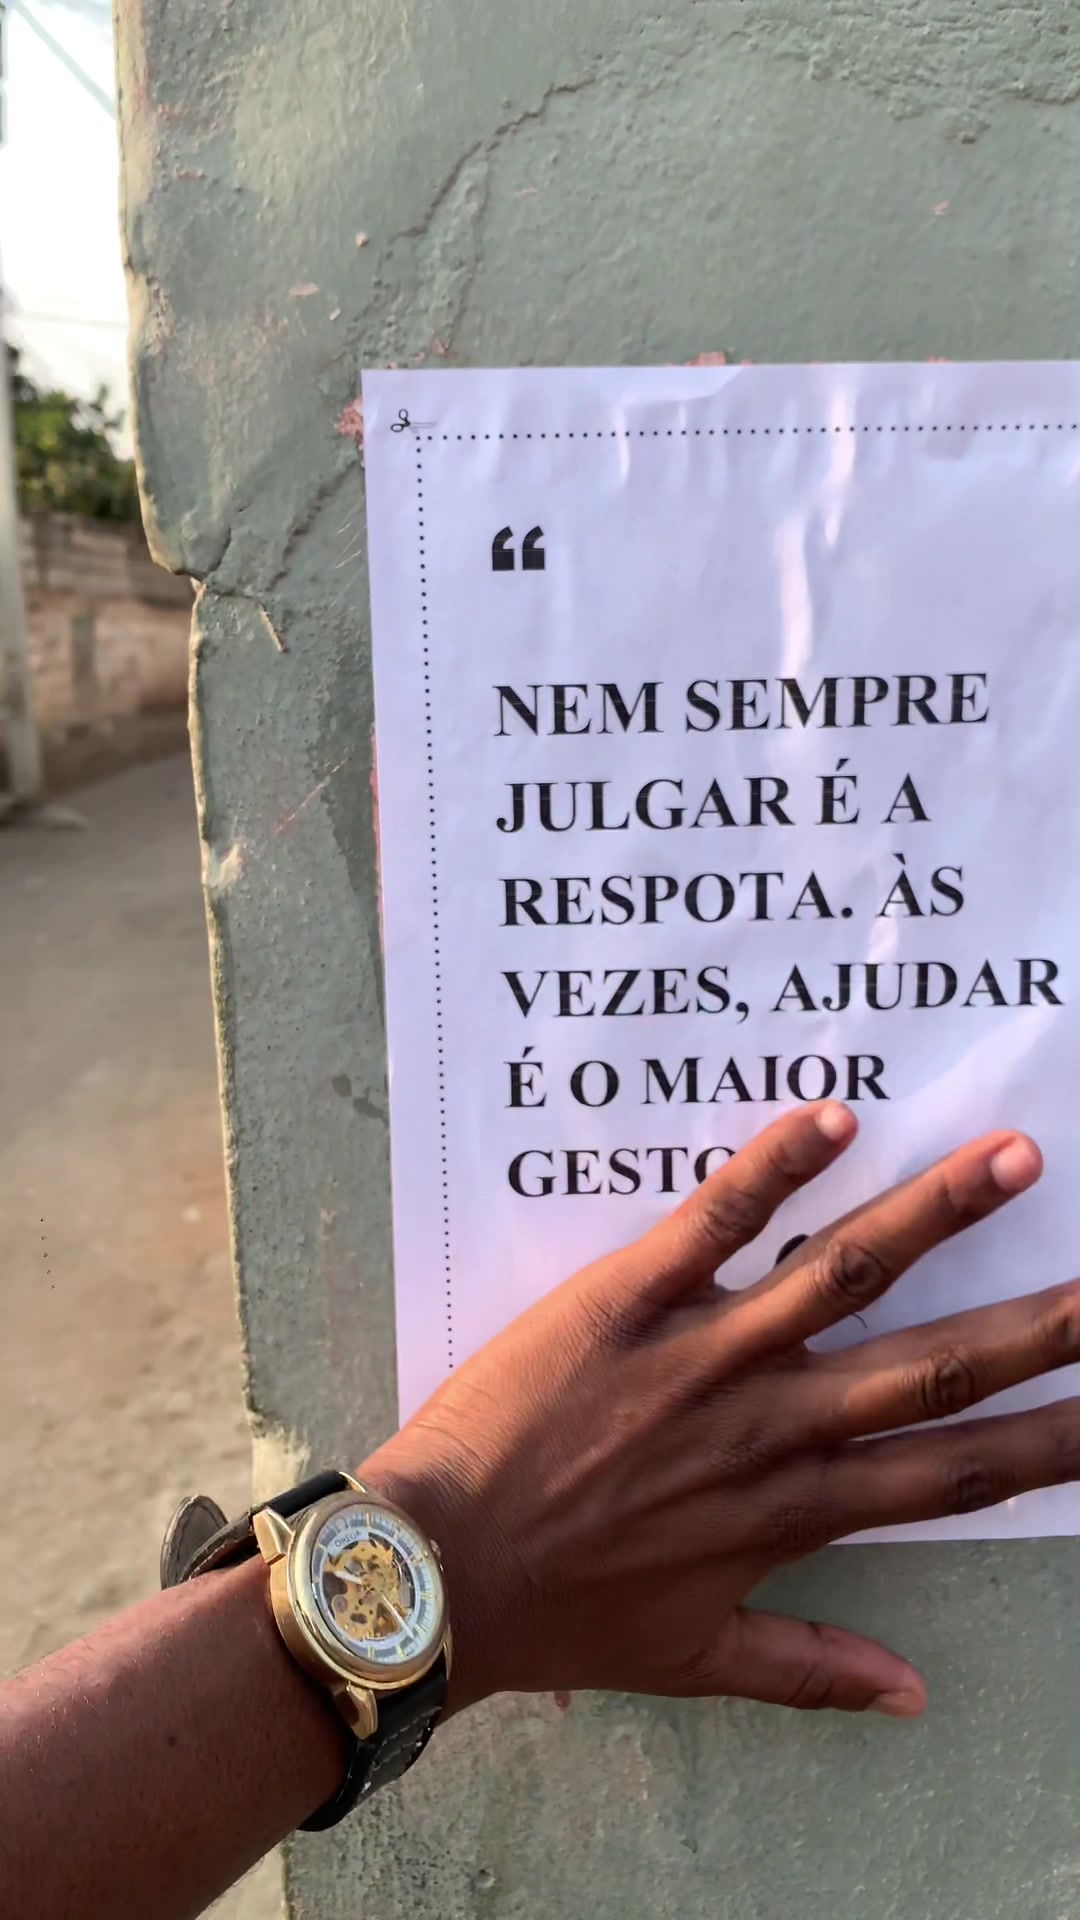 “
NEM SEMPRE
JULGAR É A
RESPOTA. ÀS
VEZES, AJUDAR
É O MAIOR
GESTO
OMEGA